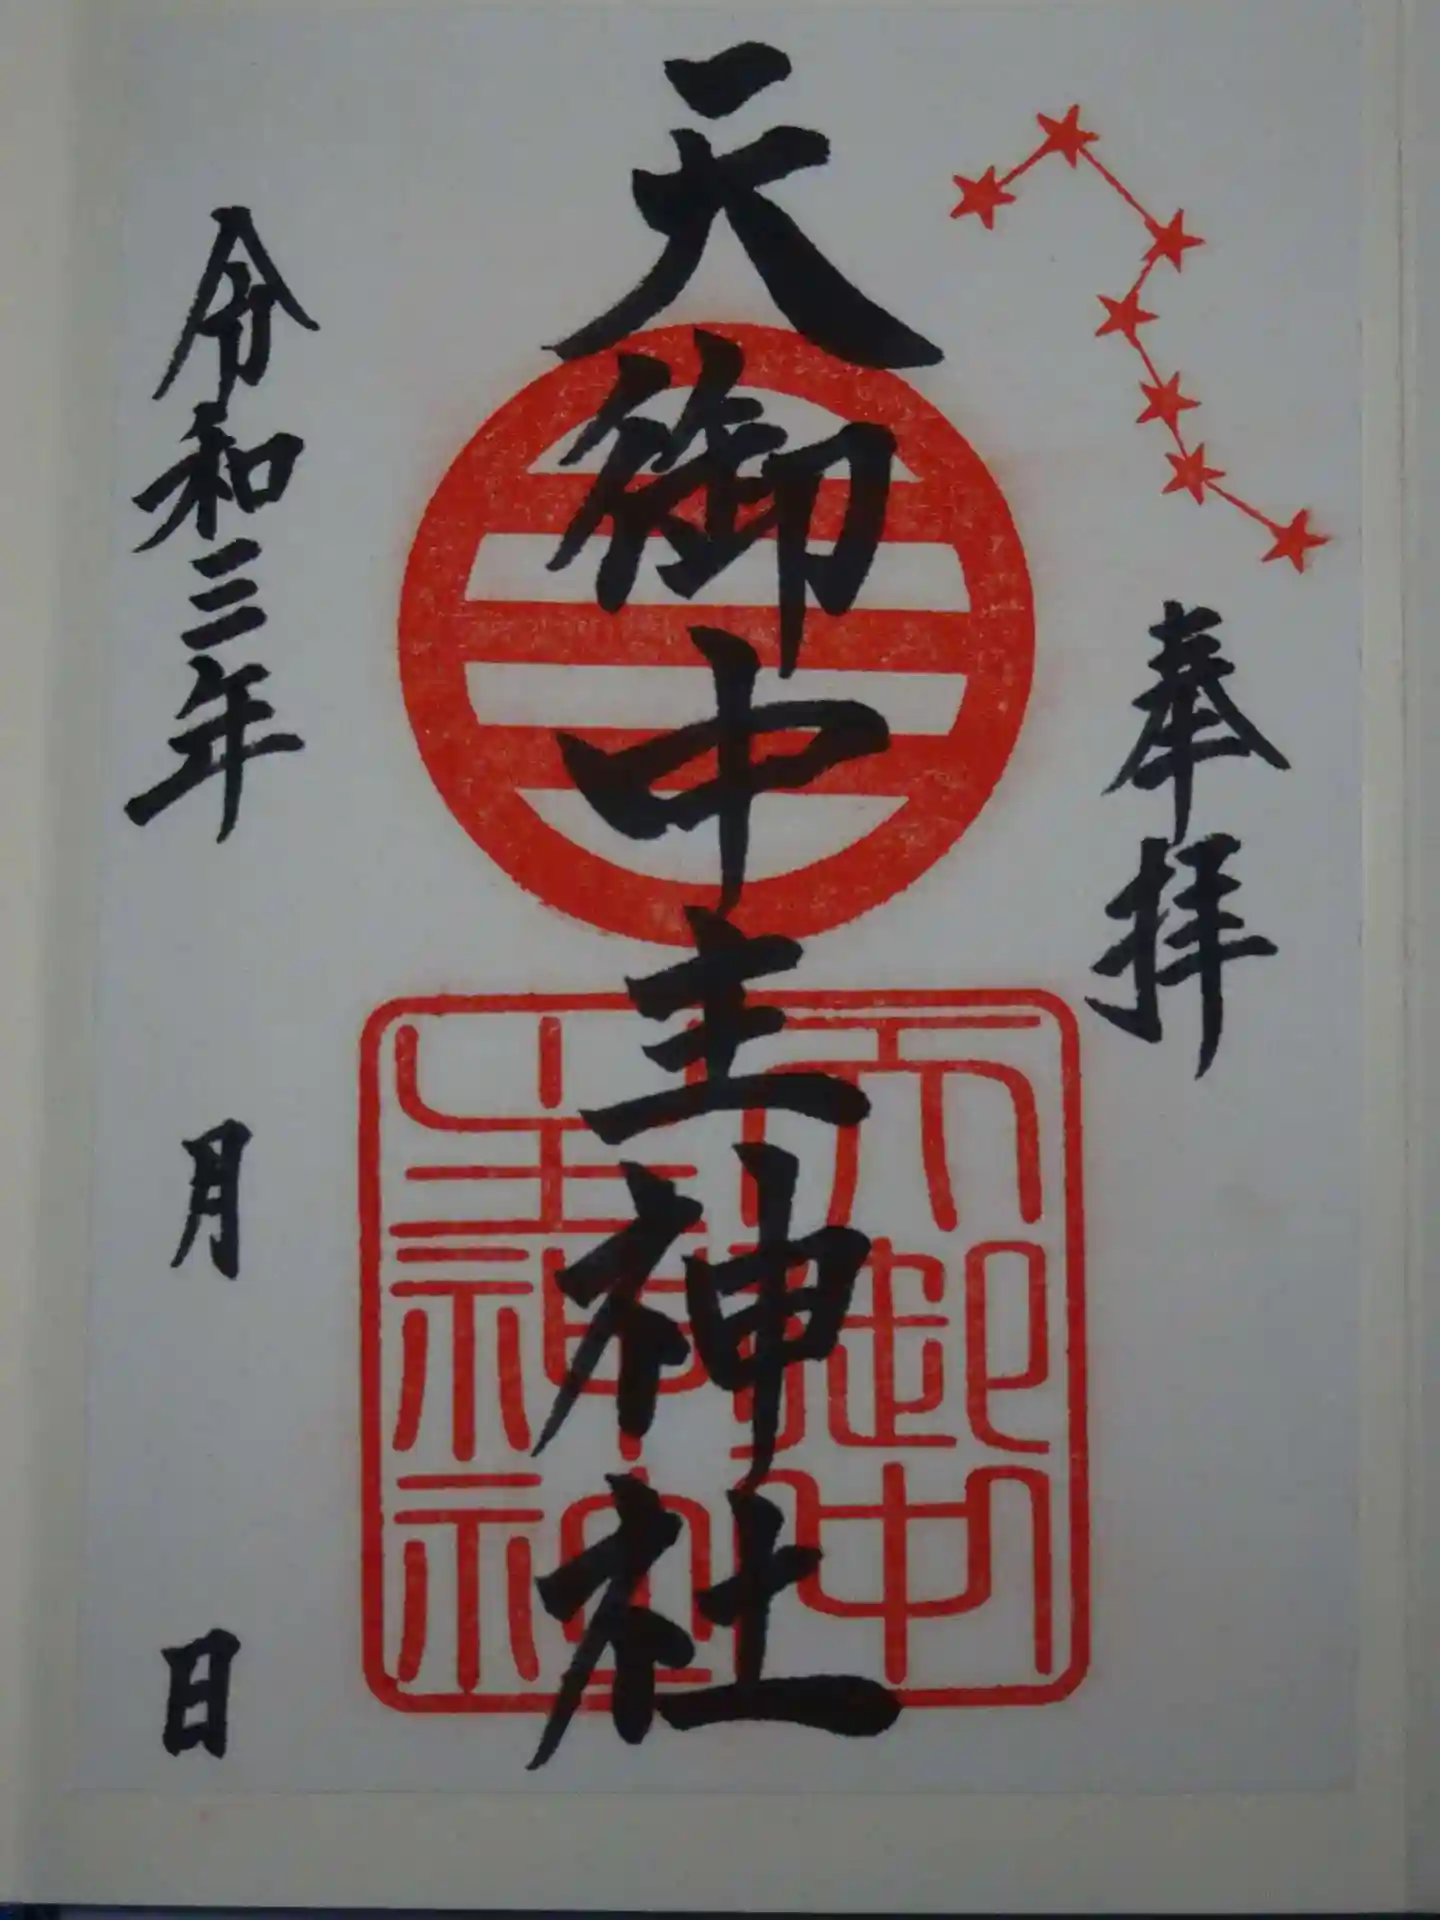 奉拝
天御中主神社
天御中
主神社
令和三年　月　日